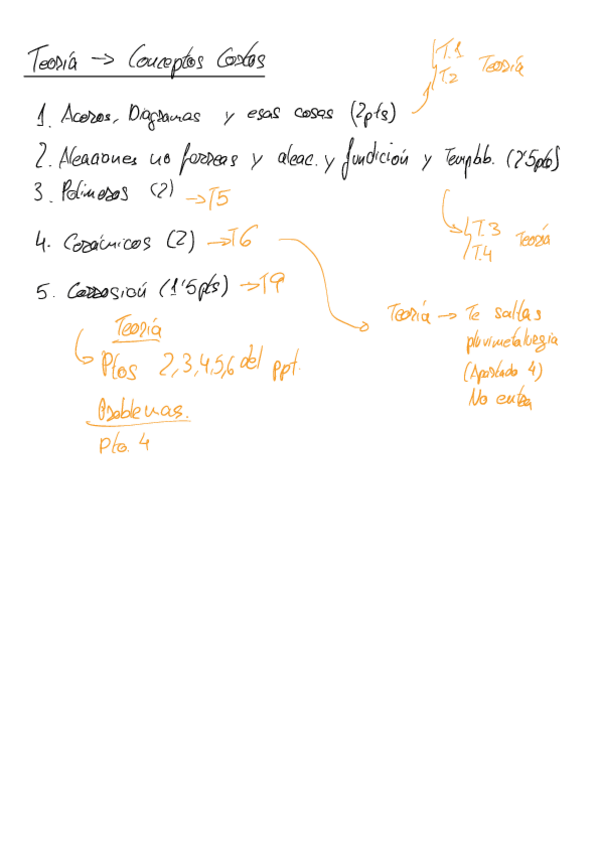 Teoría → Conceptos Cortos
1. Aceros, Diagramas y esas cosas (2pts)
T.1
T.2
Teoría
2. Aleaciones no ferreas y aleac. y fundición y Templab. (2'5pts)
T.3
T.4
Teoría
3. Polimeros (2) → T5
4. Cerámicos (2) → T6
Teoría → Te saltas
pluvimetalurgia
(Apartado 4)
No entra
5. Corrosión (1'5pts) → T9
Teoría
Ptos 2,3,4,5,6 del ppt.
Problemas.
Pto. 4